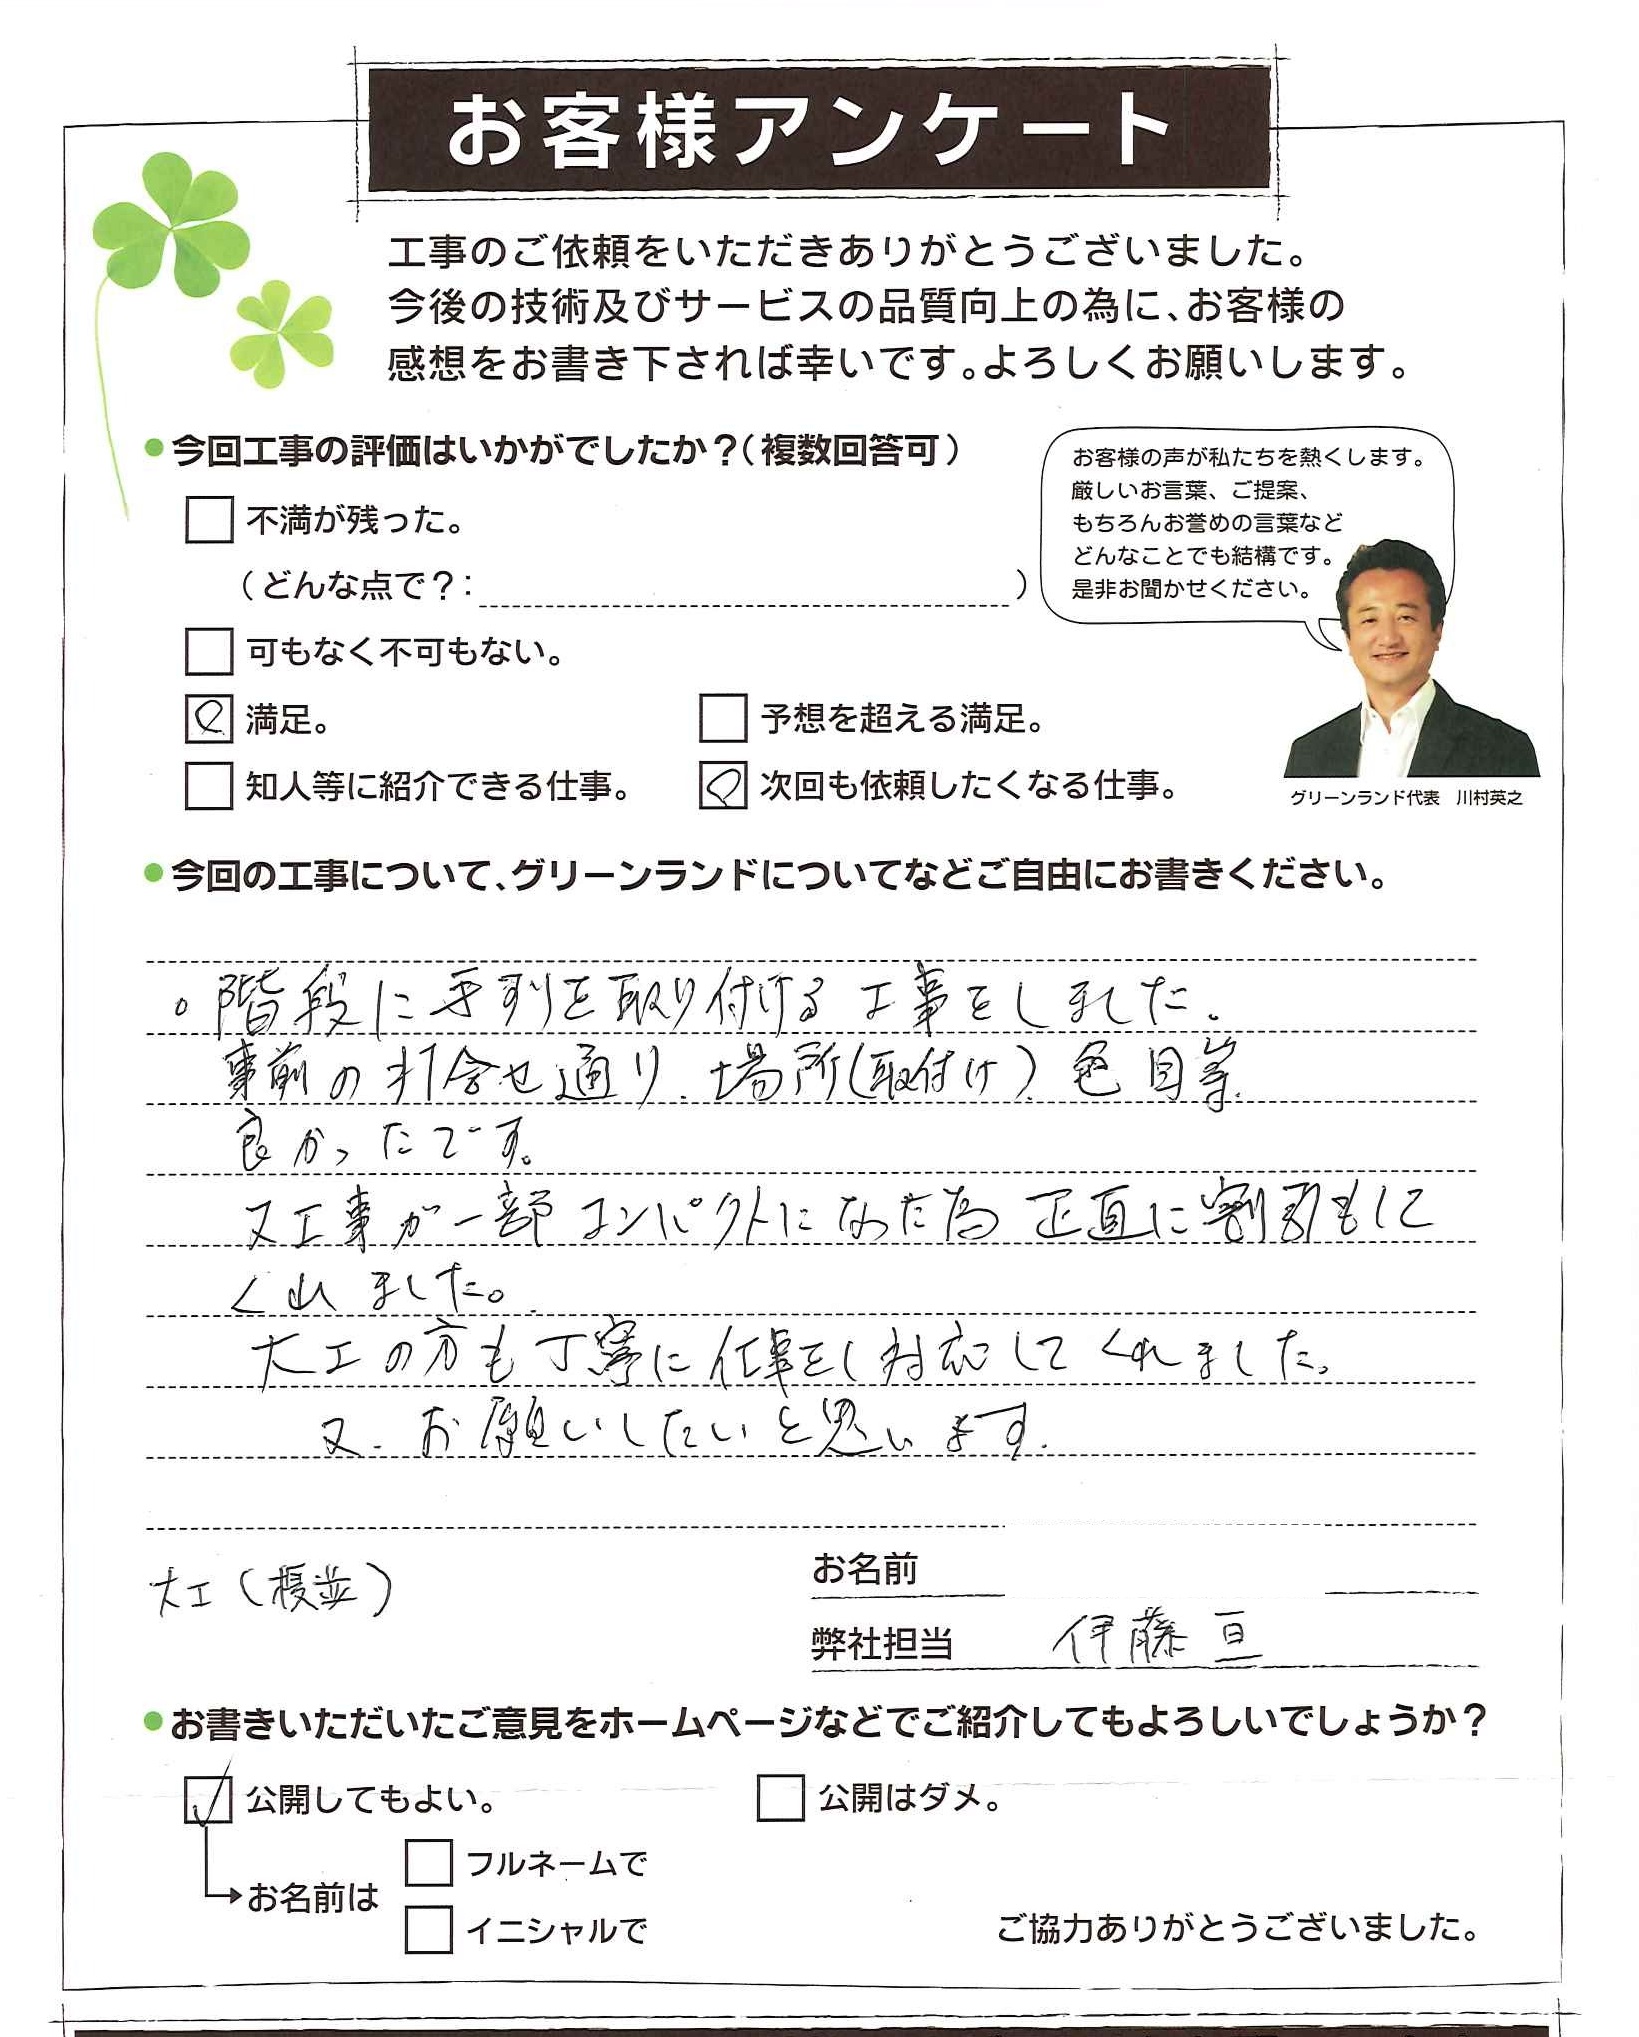 お客様アンケート
工事のご依頼をいただきありがとうございました。
今後の技術及びサービスの品質向上の為に、お客様の
感想をお書き下されば幸いです。よろしくお願いします。
●今回工事の評価はいかがでしたか？（複数回答可）
不満が残った。
（どんな点で？： ）
可もなく不可もない。
満足。
予想を超える満足。
知人等に紹介できる仕事。
次回も依頼したくなる仕事。
お客様の声が私たちを熱くします。
厳しいお言葉、ご提案、
もちろんお誉めの言葉など
どんなことでも結構です。
是非お聞かせください。
グリーンランド代表　川村英之
●今回の工事について、グリーンランドについてなどご自由にお書きください。
。階段に手刷を取り付ける工事をしました。
事前の打合せ通り、場所(取付け)、色目等、
良かったです。
又工事が一部コンパクトになった為正直に割引もして
くれました。
大工の方も丁寧に仕事をし対応してくれました。
又、お願いしたいと思います。
大工（榎並）
お名前
弊社担当　伊藤亘
●お書きいただいたご意見をホームページなどでご紹介してもよろしいでしょうか？
公開してもよい。
公開はダメ。
お名前は
フルネームで
イニシャルで
ご協力ありがとうございました。